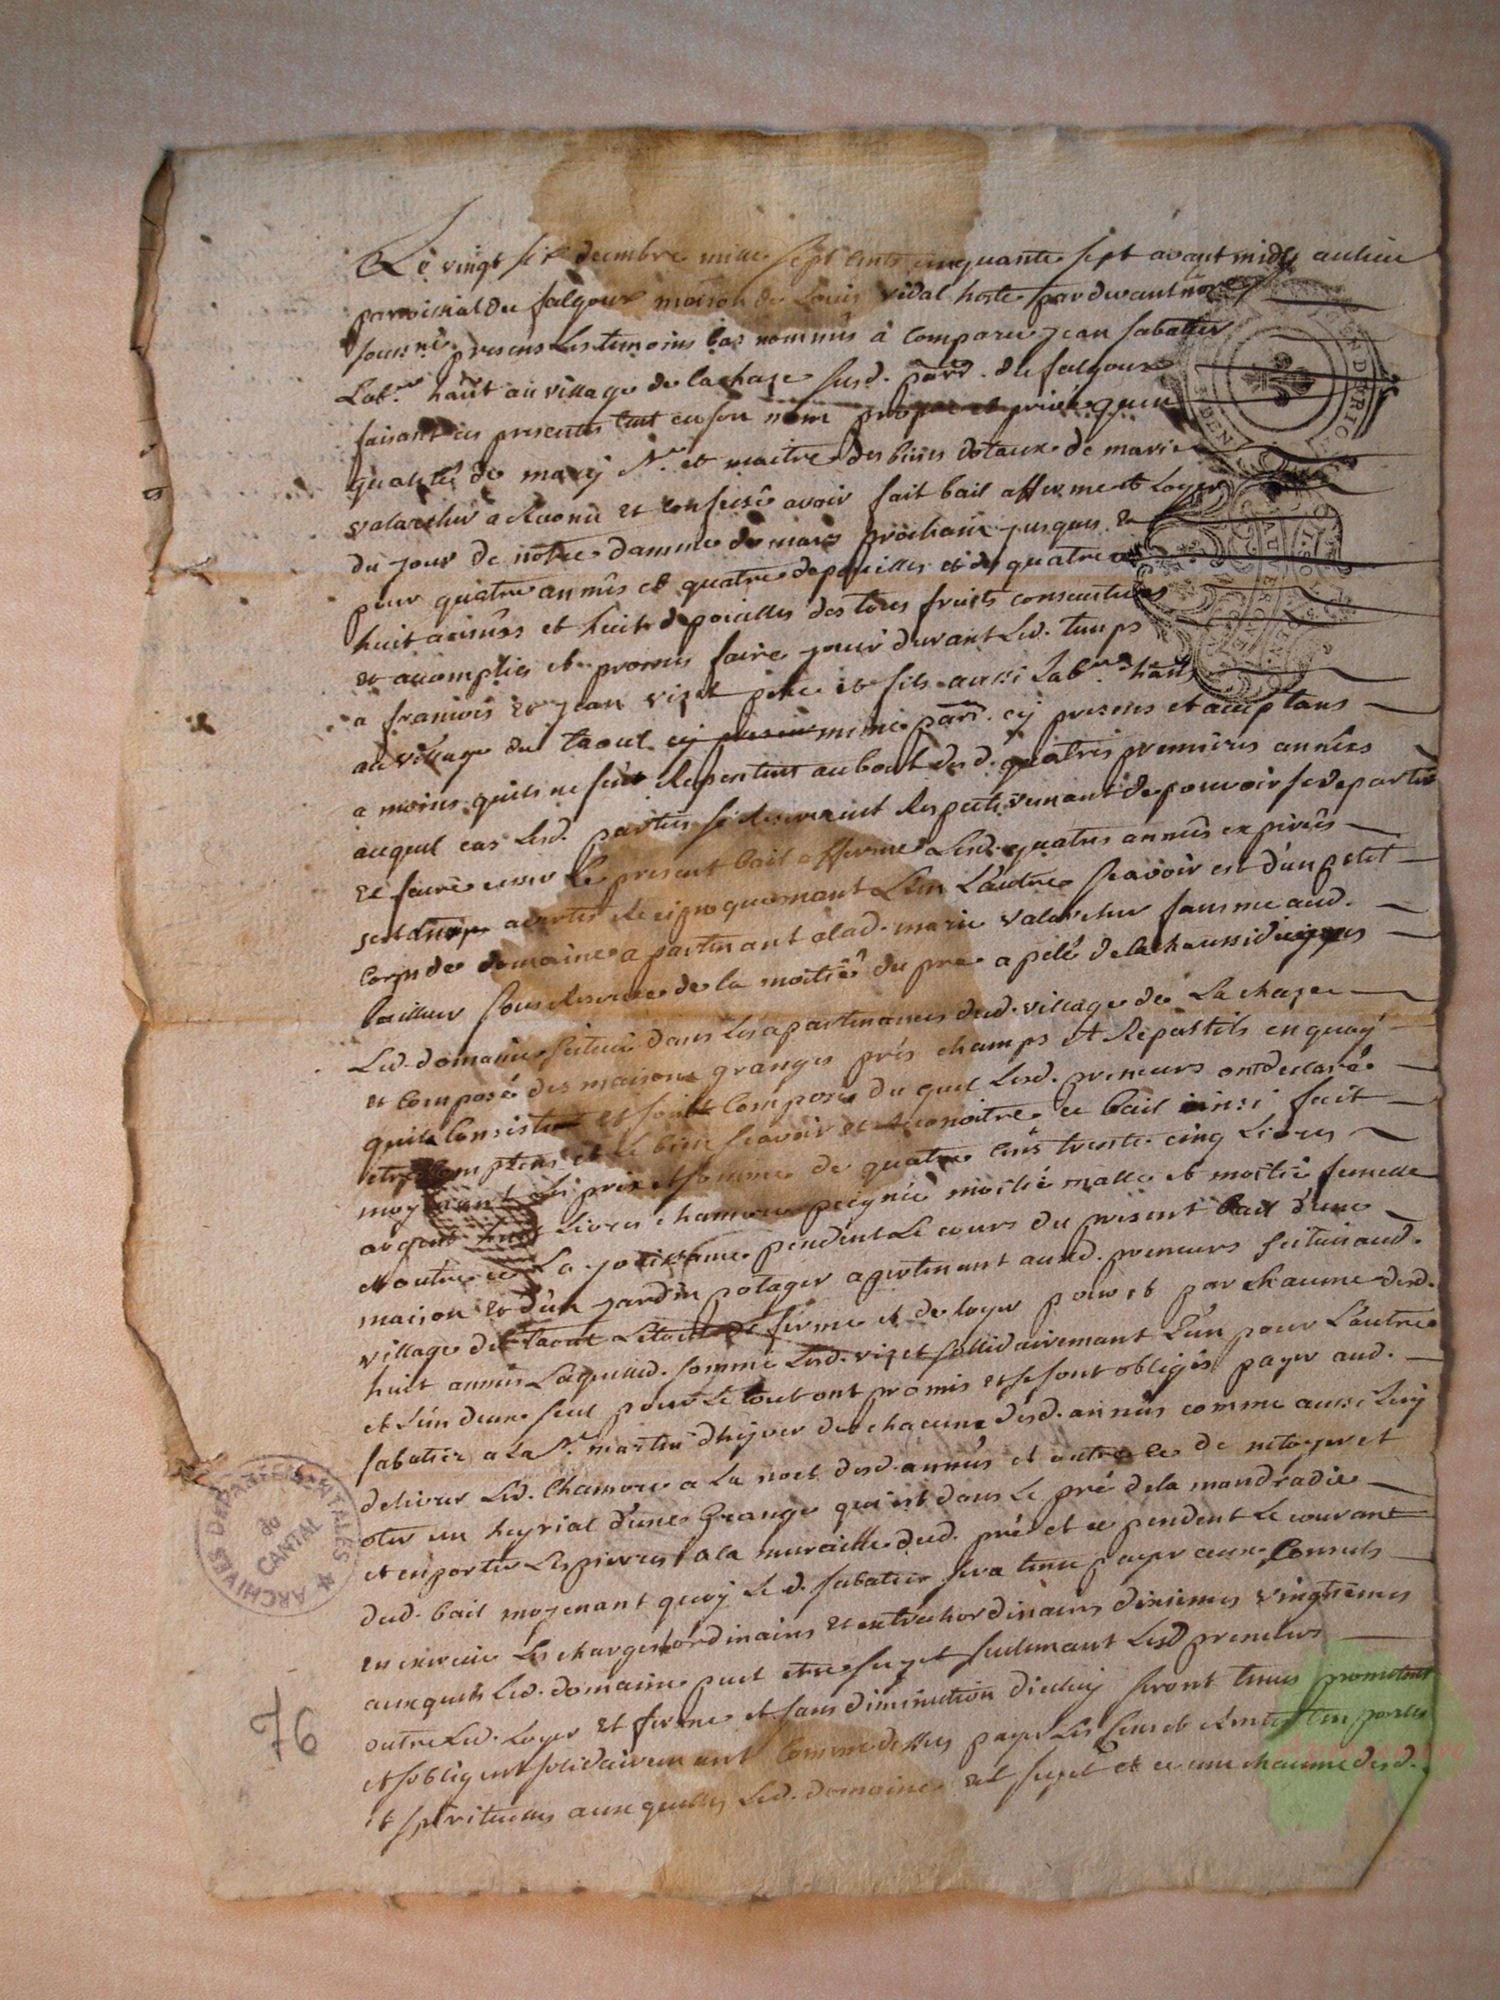 Le vingt six decembre mille sept cents cinquante sept avant midy au lieu
paroissial du falgoux maison de Louis vidal hoste par devant no.re
sous.né presens Les temoins bas nommés à comparu jean sabatier
Lab.r hãnt au village de la chaze susd. parr. du falgoux
faisant ces presentes tant en son nom propre et privé quen
qualité de mary N.e et maitre des biens dotaux de marie
valarcher a Reconu et confessé avoir fait bail afferme et Loyer
du jour de notre damme de mars prochain jusques et
pour quatre années et quatre depouilles et de quatre en
huit années et huit depouilles des tous fruits consecutives
et accomplies et promis faire jouir durant Led. temps
a francois et jean vizet pere et fils aussi Lab.rs hãnts
au village du taoul meme parr. cy presens et acceptans
a moins quils ne soit Repentent au bout desd. quatres premieres années
auquel cas Lesd. parties se Reservent Respectivemant de pouvoir se departir
et faire cesser Le present bail afferme Lesd. quatres années expirées
avertir Reciproquemant L'un L'autre scavoir est d'un petit
corps de domaine apartenant alad. marie valarcher famme aud.
bailleur sous Reserve de la moitié du pré apelé de la
Led. domaine scitué dans Les apartenances dud. village de La chaze
et composé des maisons granges prés champs et Repastils en quoy
quil consiste et soit composé du quel Lesd. preneurs ont declaré
être et le bien scavoir et Reconoitre ce bail ainsi fait
moyenant Le prix et somme de quatre cens trente cinq Livres
argent Livres chamvre peignié moitié malle et moitié femelle
et outre ce La jouissance pendent Le cours du present bail d'une
maison et d'un jardin potager apertenant auxd. preneurs scitué aud.
village du taoul Le tout de ferme et de loyer pour et par chacune desd.
huit années Laquelled. somme Lesd. vizet sollidairemant L'un pour L'autre
et L'un deux seul pour Le tout ont promis et se sont obligés payer aud.
sabatier a La S.t martin d'hyver de chacune desd. années comme aussi Luy
delivrer Led. chamvre a La noel desd. années et outre ce de netoyer et
oter un heyrial d'une Grange qui est dans Le pré dela mandradie
et en porter Les pierres a La muraille dud. pré et ce pendent Le courant
dud. bail moyenant quoy Le d. sabatier sera tenu payer aux Consuls
en exercice Les charges ordinaires et extrahordinaires dixiemes vingtiemes
auxquels Led. domaine put etre sujet seulemant Lesd. preneurs
outre Led. Loyer et ferme et sans diminution d'icelluy seront tenus promettent
et sobligent solidairemant comme dessus payer Les cens et Rentes temporelles
et spirituelles auxquelles Led. domaine est sujet et ce une chacune desd.
ARCHIVES DÉPARTEMENTALES
du
CANTAL
76